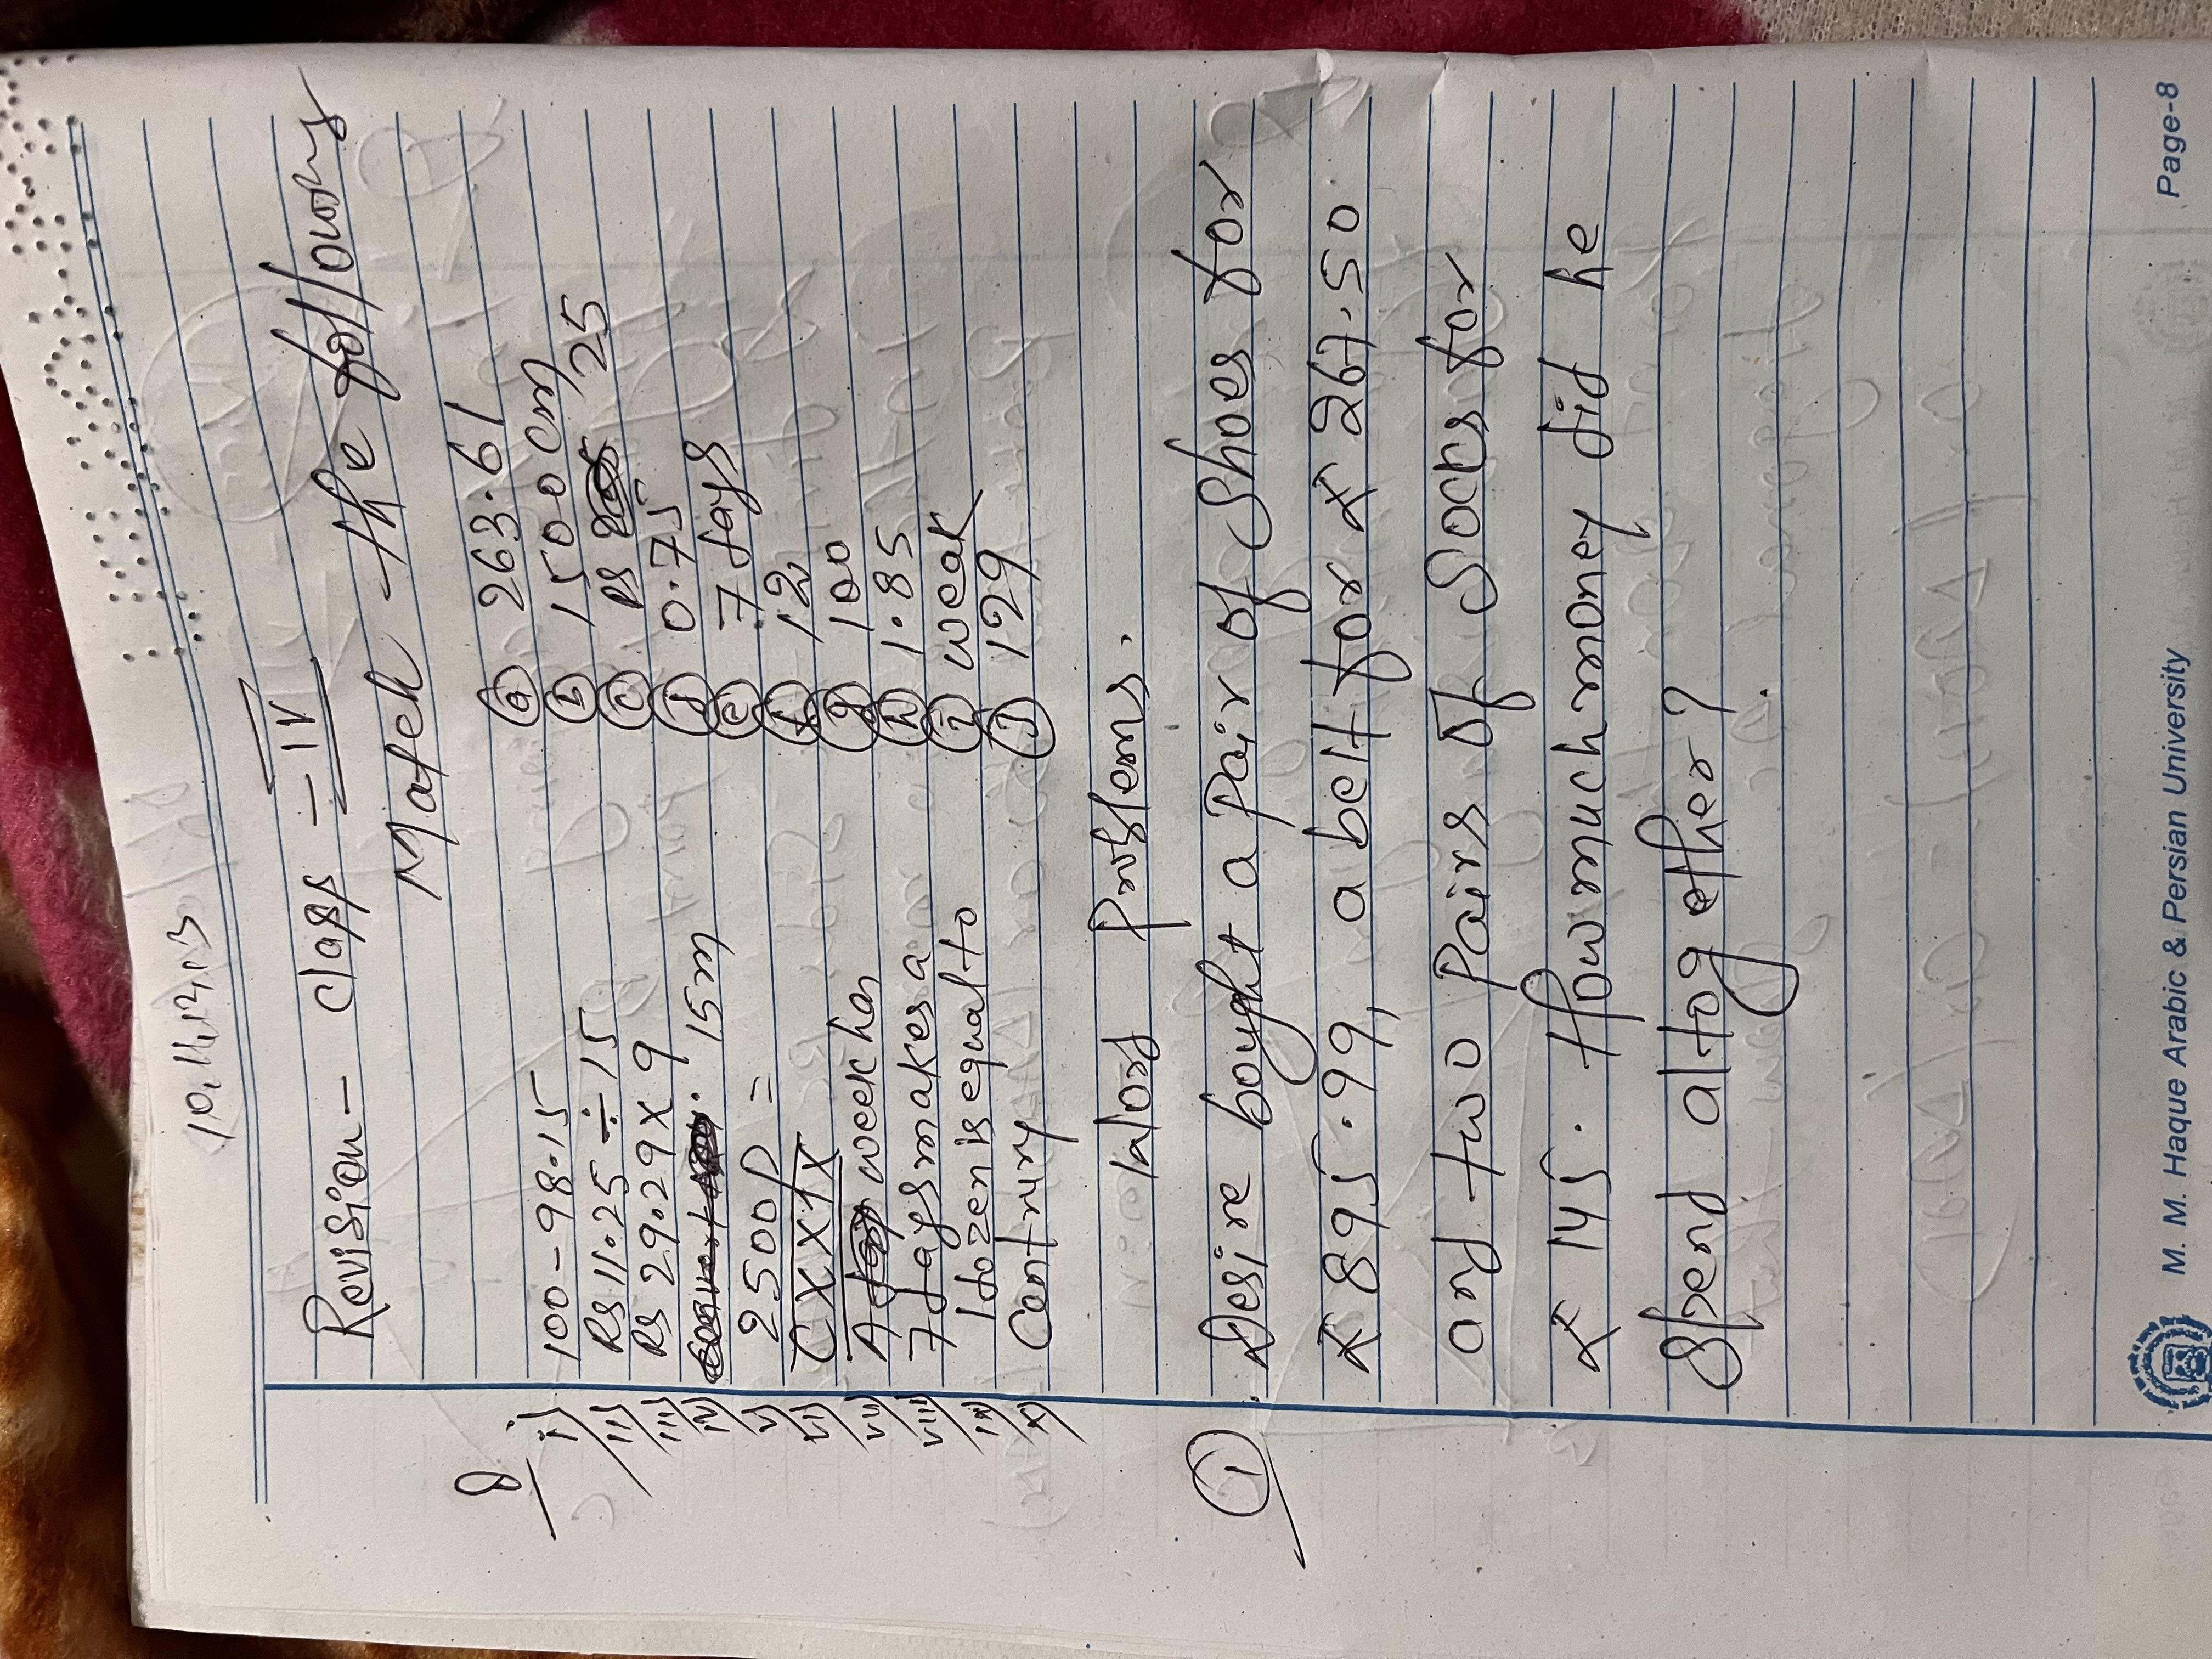 10,11,12,13
Revision - Class - IV
Match the followings
i) 100 - 98.15 (a) 263.61
ii) Rs 11.25 ÷ 15 (b) 1500 cm
iii) Rs 29.29 x 9 (c) Rs 25
iv) 15m (d) 0.75
v) 2500 P = (e) 7 days
vi) CXXIX (f) 12
vii) A week has (g) 100
viii) 7 days makes a (h) 1.85
ix) 1 dozen is equal to (i) weak
x) Century (j) 129
Word Problems.
(1) Desire bought a Pair of Shoes for
₹ 895.99, a belt for ₹ 267.50
and two Pairs of Socks for
₹ 145. How much money did he
Spend altogether?
M. M. Haque Arabic & Persian University Page-8